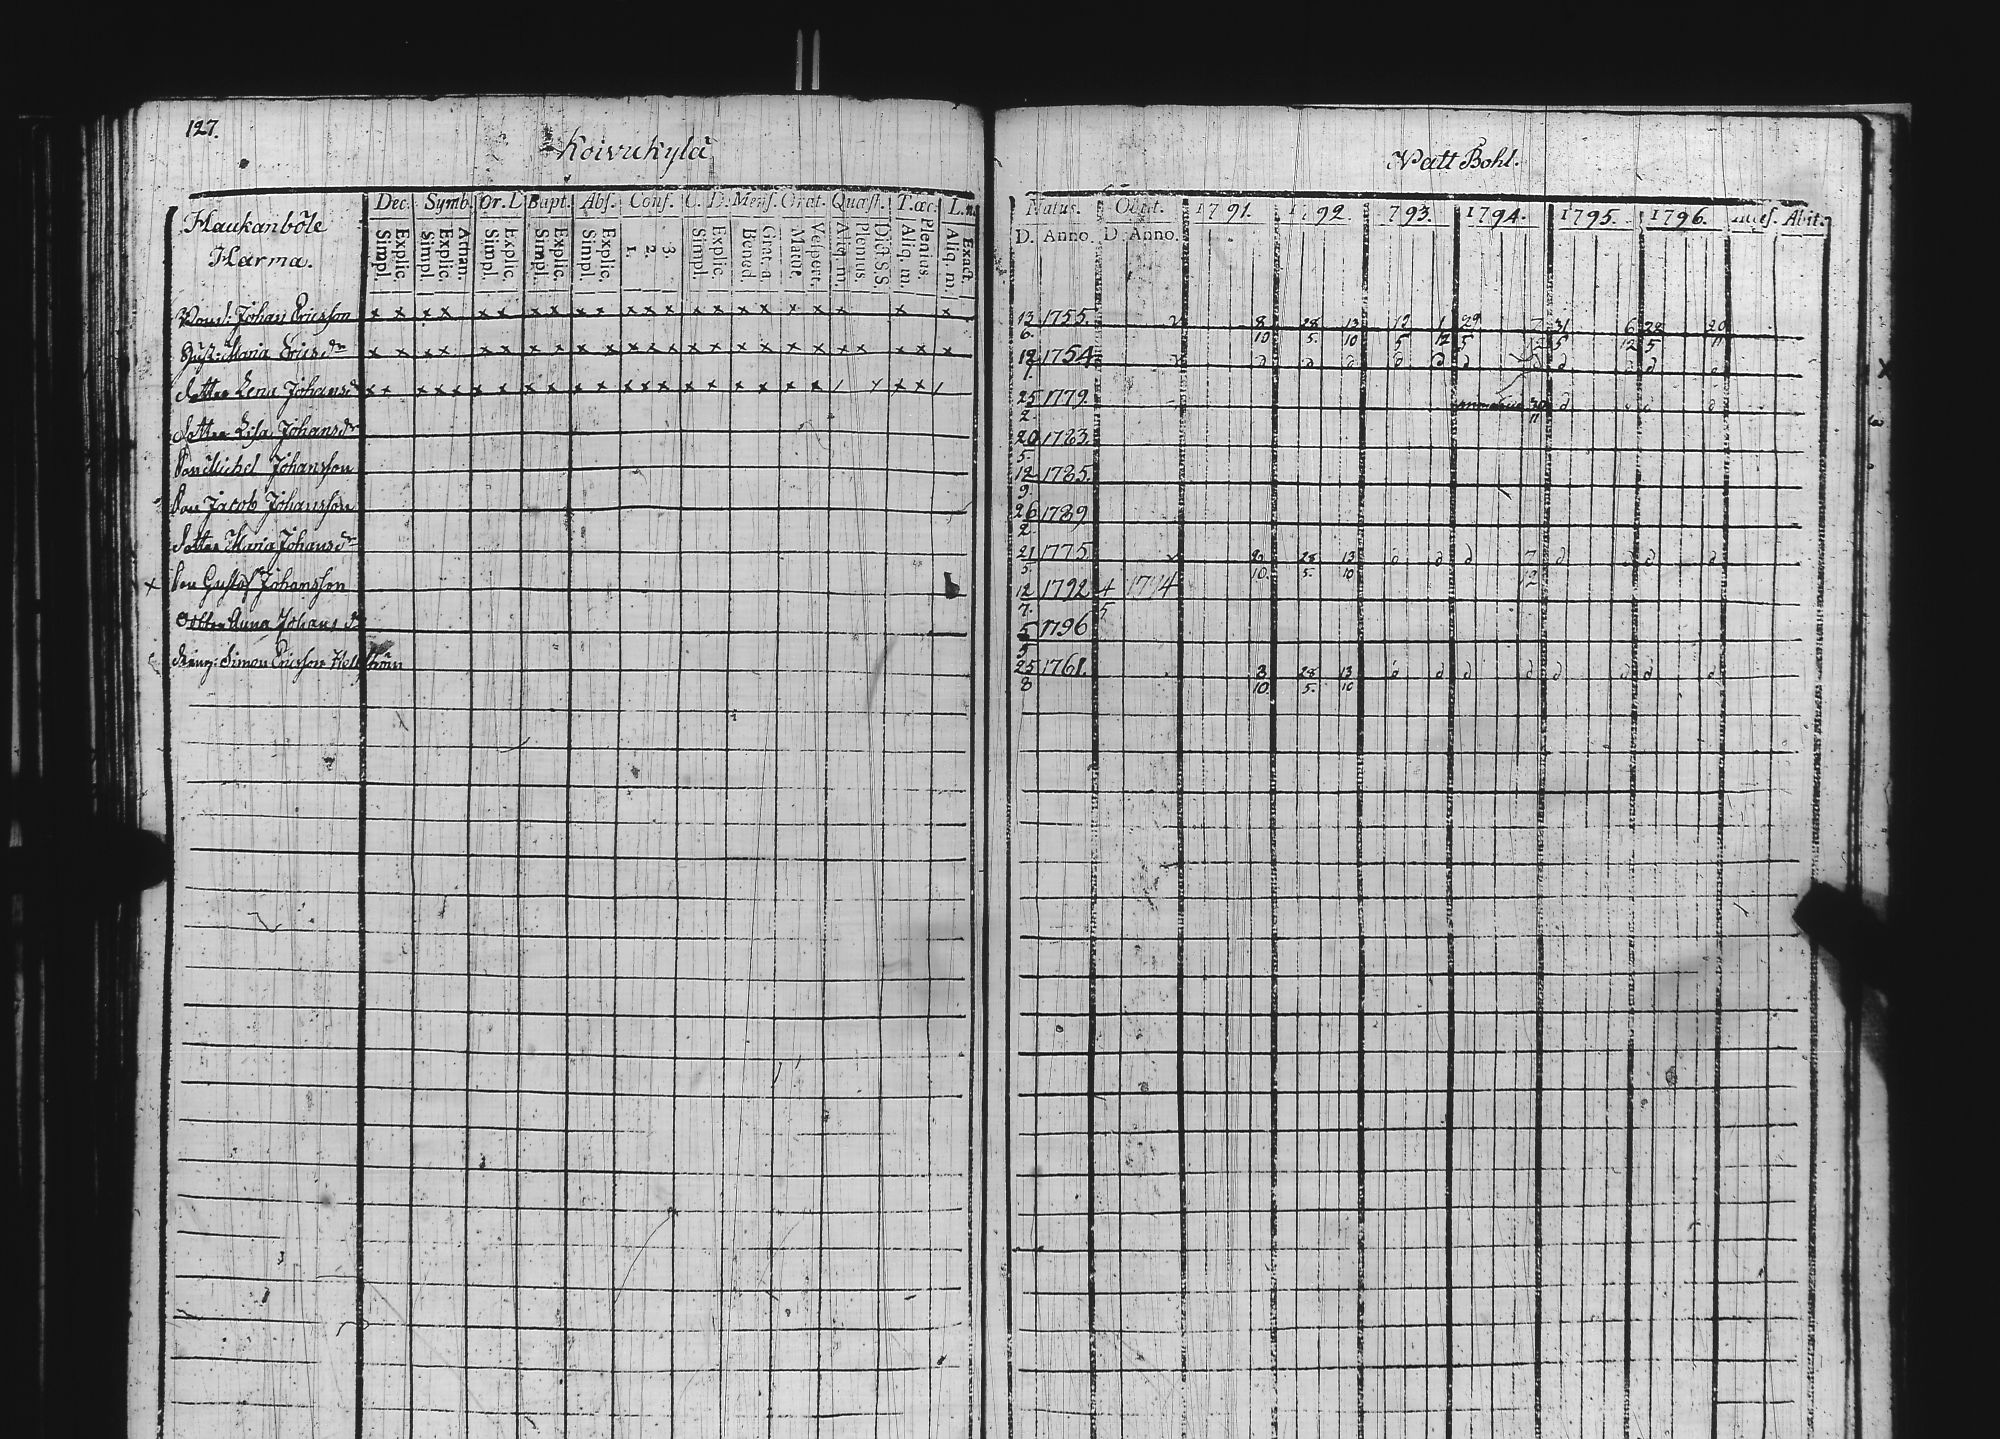 127.
Koivukylä
Natt Bohl.
Dec. Symb. Or. L Bapt. Abs. Conf. C. D. Mens. Orat. Quæst. T. œc. L. n.
Haukanböle
Harma.
Simpl. Explic. Simpl. Explic. Athan. Simpl. Explic. Simpl. Explic. Simpl. Explic. 1. 2. 3. Simpl. Explic. Bened. Grat. a. Matut. Vespert. Aliq. m. Plenius. Dict. S.S. Aliq. m. Plenius. Aliq. m. Exact.
Natus. Obiit. 1791. 1792. 793. 1794. 1795. 1796. Abit.
D. Anno. D. Anno.
Johan Ericsson x x x x x x x x x x x x x x x x x x x x x x
13/6 1755. 8/10 28/5. 13/10 12/5 29/5 31/5 6/12 28/5 20/11
Maria Ericsdr x x x x x x x x x x x x x x x x x x x x x x x x
1754 d d d d d d d d d
dotter Lena Johansdr x x x x x x x x x x x x x x x x x x x x
25/2 1779. 30/11 d
dotter Lisa Johansdr
20/5 1783.
Son Michel Johansson
12/9 1785.
Son Jacob Johansson
26/2 1789
dotter Maria Johansdr
21/5 1775. 28/5. 13/10 d d d 7/12 d d d
x Son Gustaf Johansson
12/7. 1792 4/5 1794
dotter Anna Johansdr
1796
Simon Ericsson
25/8 1761. 8/10. 28/5. 13/10 d d d d d d d d